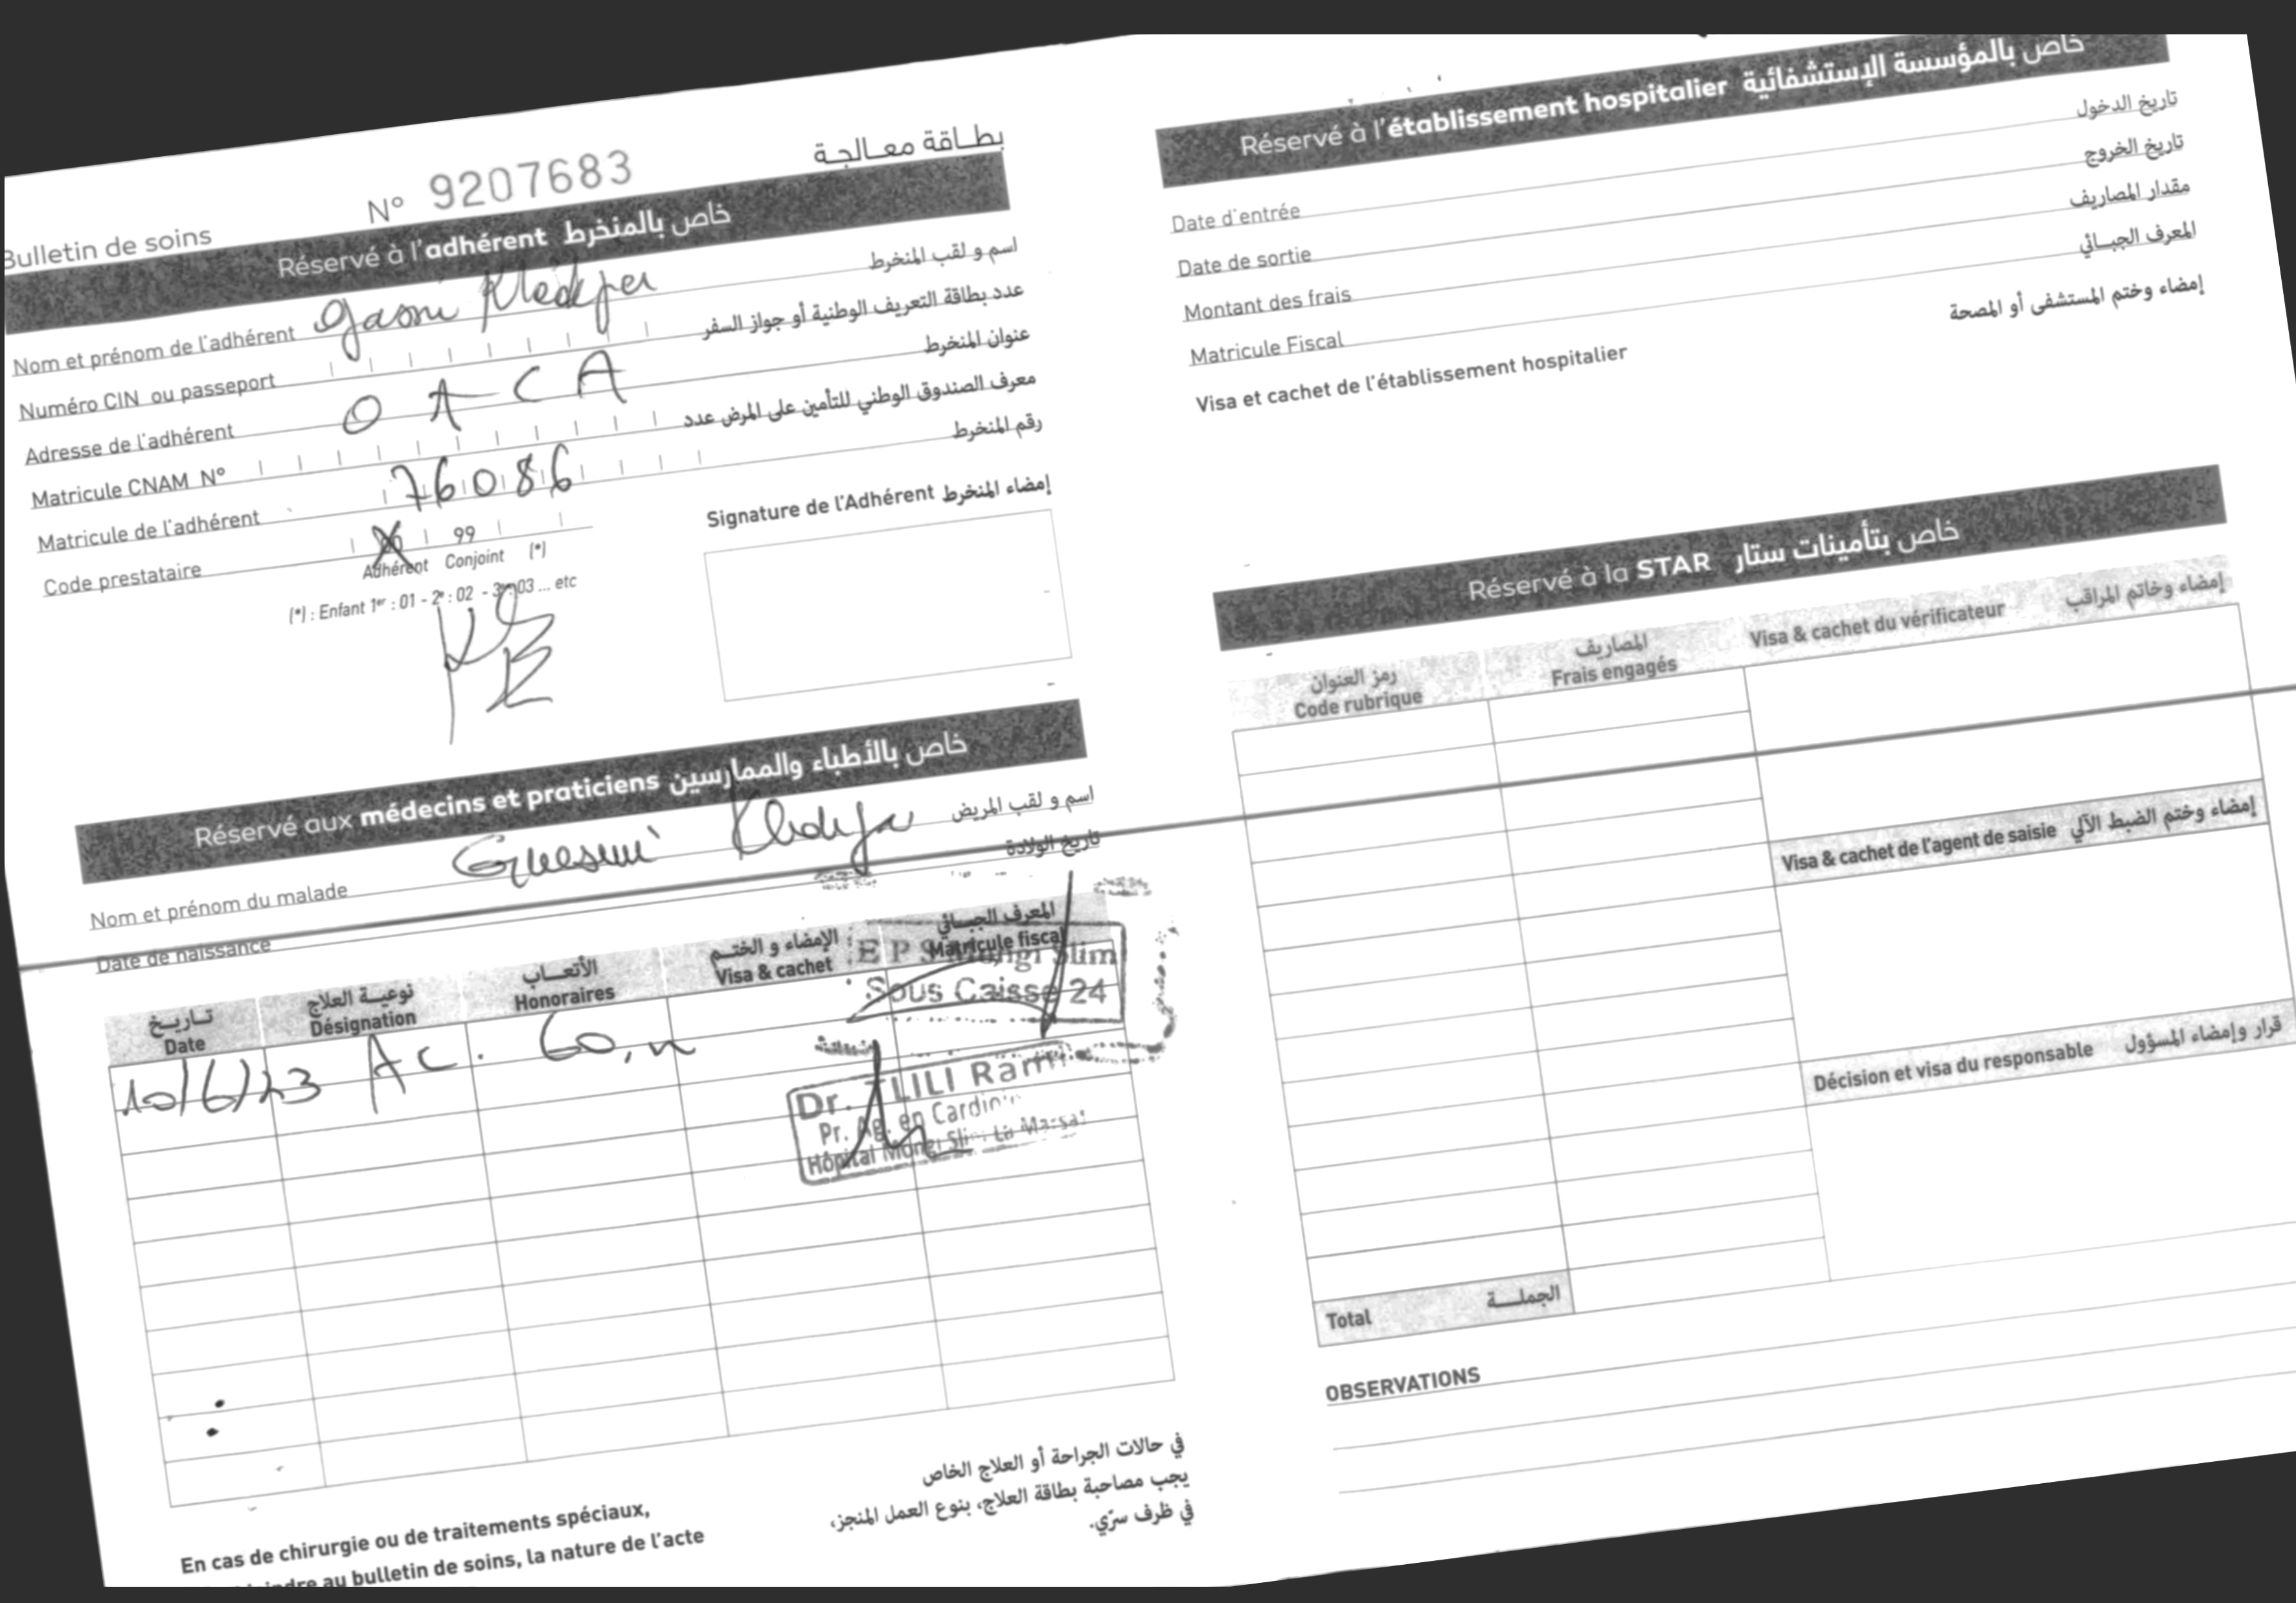 Bulletin de soins
N° 9207683
بطـاقة معـالجـة
Réservé à l'adhérent خاص بالمنخرط
Nom et prénom de l'adhérent
اسم و لقب المنخرط
Numéro CIN ou passeport
عدد بطاقة التعريف الوطنية أو جواز السفر
Adresse de l'adhérent O A C A
عنوان المنخرط
Matricule CNAM N°
معرف الصندوق الوطني للتأمين على المرض عدد
Matricule de l'adhérent 76086
رقم المنخرط
Code prestataire 00 99
Adhérent Conjoint (*)
(*) : Enfant 1er : 01 - 2e : 02 - 3e : 03 ... etc
Signature de l'Adhérent إمضاء المنخرط
Réservé aux médecins et praticiens خاص بالأطباء والممارسين
Nom et prénom du malade
اسم و لقب المريض
Date de naissance
تاريخ الولادة
تـاريـخ نوعيـة العلاج الأتعـاب الإمضاء و الختـم المعرف الجبـائي
Date Désignation Honoraires Visa & cachet Matricule fiscal
10/6/23 AC.
E P S Mongi Slim
Sous Caisse 24
Dr. TLILI Rami
Pr. Ag. en
Hôpital Mongi Slim La Marsa
En cas de chirurgie ou de traitements spéciaux,
au bulletin de soins, la nature de l'acte
في حالات الجراحة أو العلاج الخاص
يجب مصاحبة بطاقة العلاج، بنوع العمل المنجز،
في ظرف سرّي.
Réservé à l'établissement hospitalier خاص بالمؤسسة الإستشفائية
Date d'entrée
تاريخ الدخول
Date de sortie
تاريخ الخروج
Montant des frais
مقدار المصاريف
Matricule Fiscal
المعرف الجبـائي
Visa et cachet de l'établissement hospitalier
إمضاء وختم المستشفى أو المصحة
Réservé à la STAR خاص بتأمينات ستار
رمز العنوان المصاريف
Code rubrique Frais engagés
Visa & cachet du vérificateur إمضاء وخاتم المراقب
Visa & cachet de l'agent de saisie إمضاء وختم الضبط الآلي
Décision et visa du responsable قرار وإمضاء المسؤول
Total الجملـــة
OBSERVATIONS